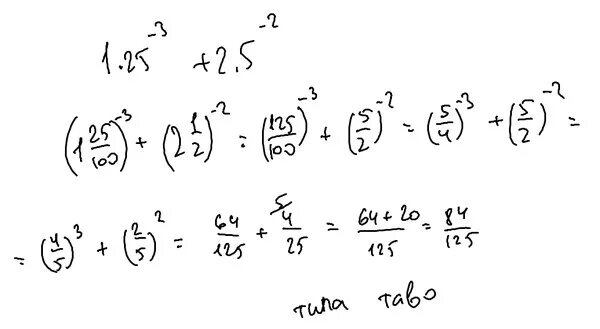 1.25⁻³ + 2.5⁻²
(1 25/100)⁻³ + (2 1/2)⁻² = (125/100)⁻³ + (5/2)⁻² = (5/4)⁻³ + (5/2)⁻² =
= (4/5)³ + (2/5)² = 64/125 + ⁵⁄4/25 = 64+20/125 = 84/125
типа таво